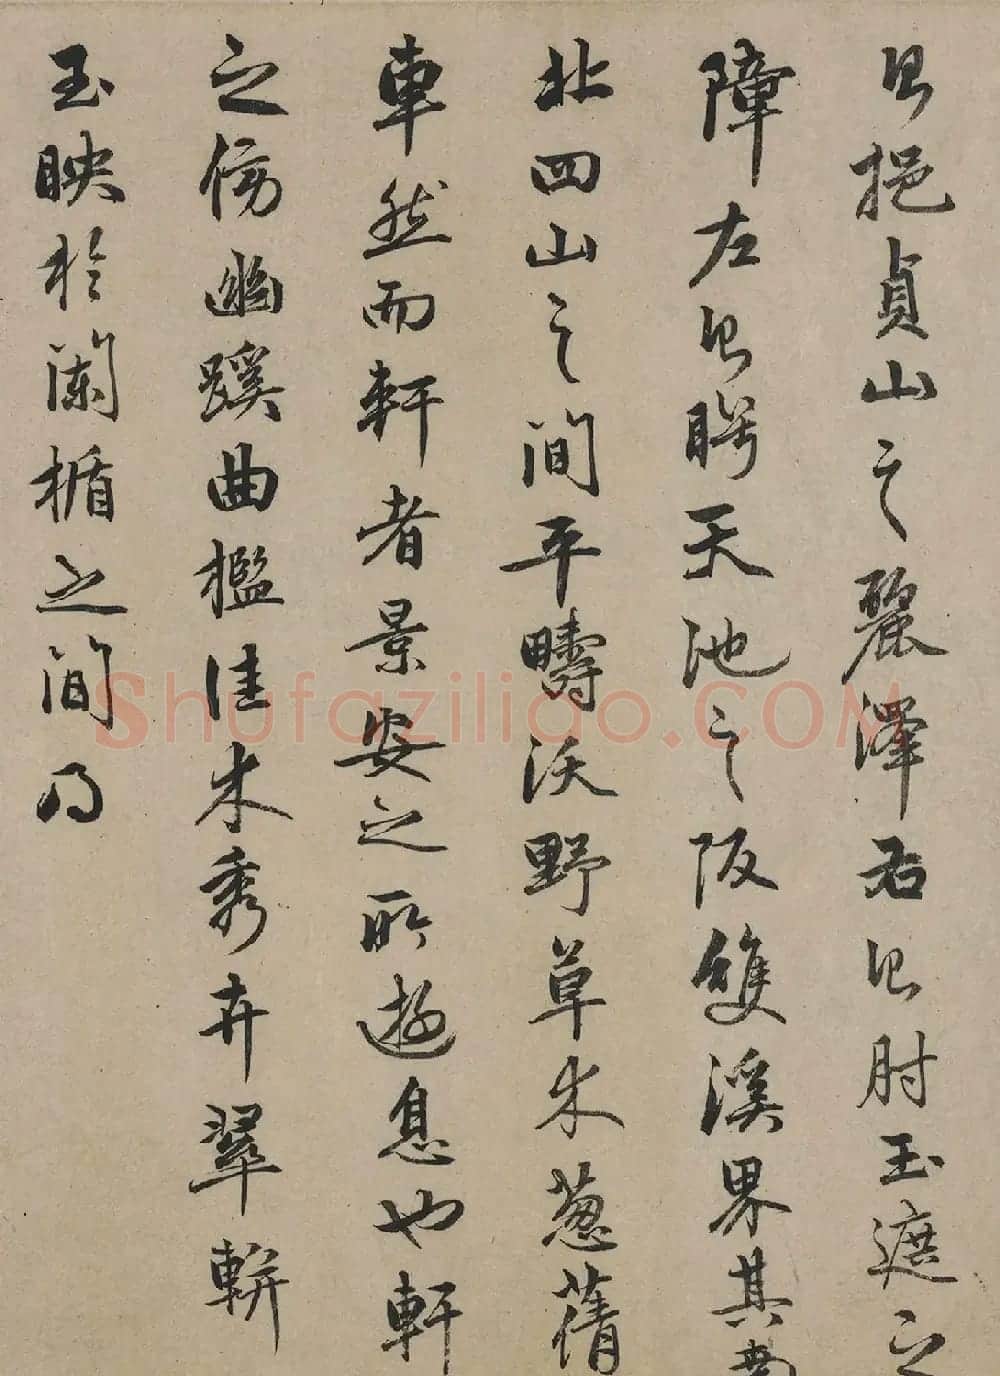 以挹貞山之麗澤右以肘玉遮之
障左以睨天池之阪雙溪界其南
北四山之間平疇沃野草木葱蒨
車然而軒者景安之所遊息也軒
之傍幽蹊曲檻佳木秀卉翠輧
玉映於闌楯之間乃
Shufaziliao.COM